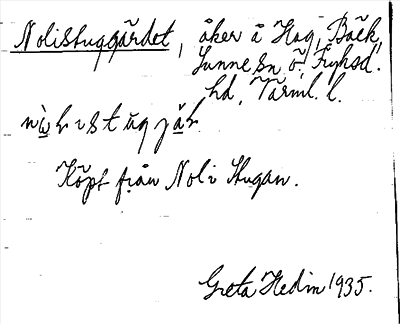 Nolistuggärdet, åker å Hag, Bäck,
Sunne sn, ö. Fryksd.
hd, Värml. l.
Köpt från Noli Stugan.
Greta Hedin 1935.